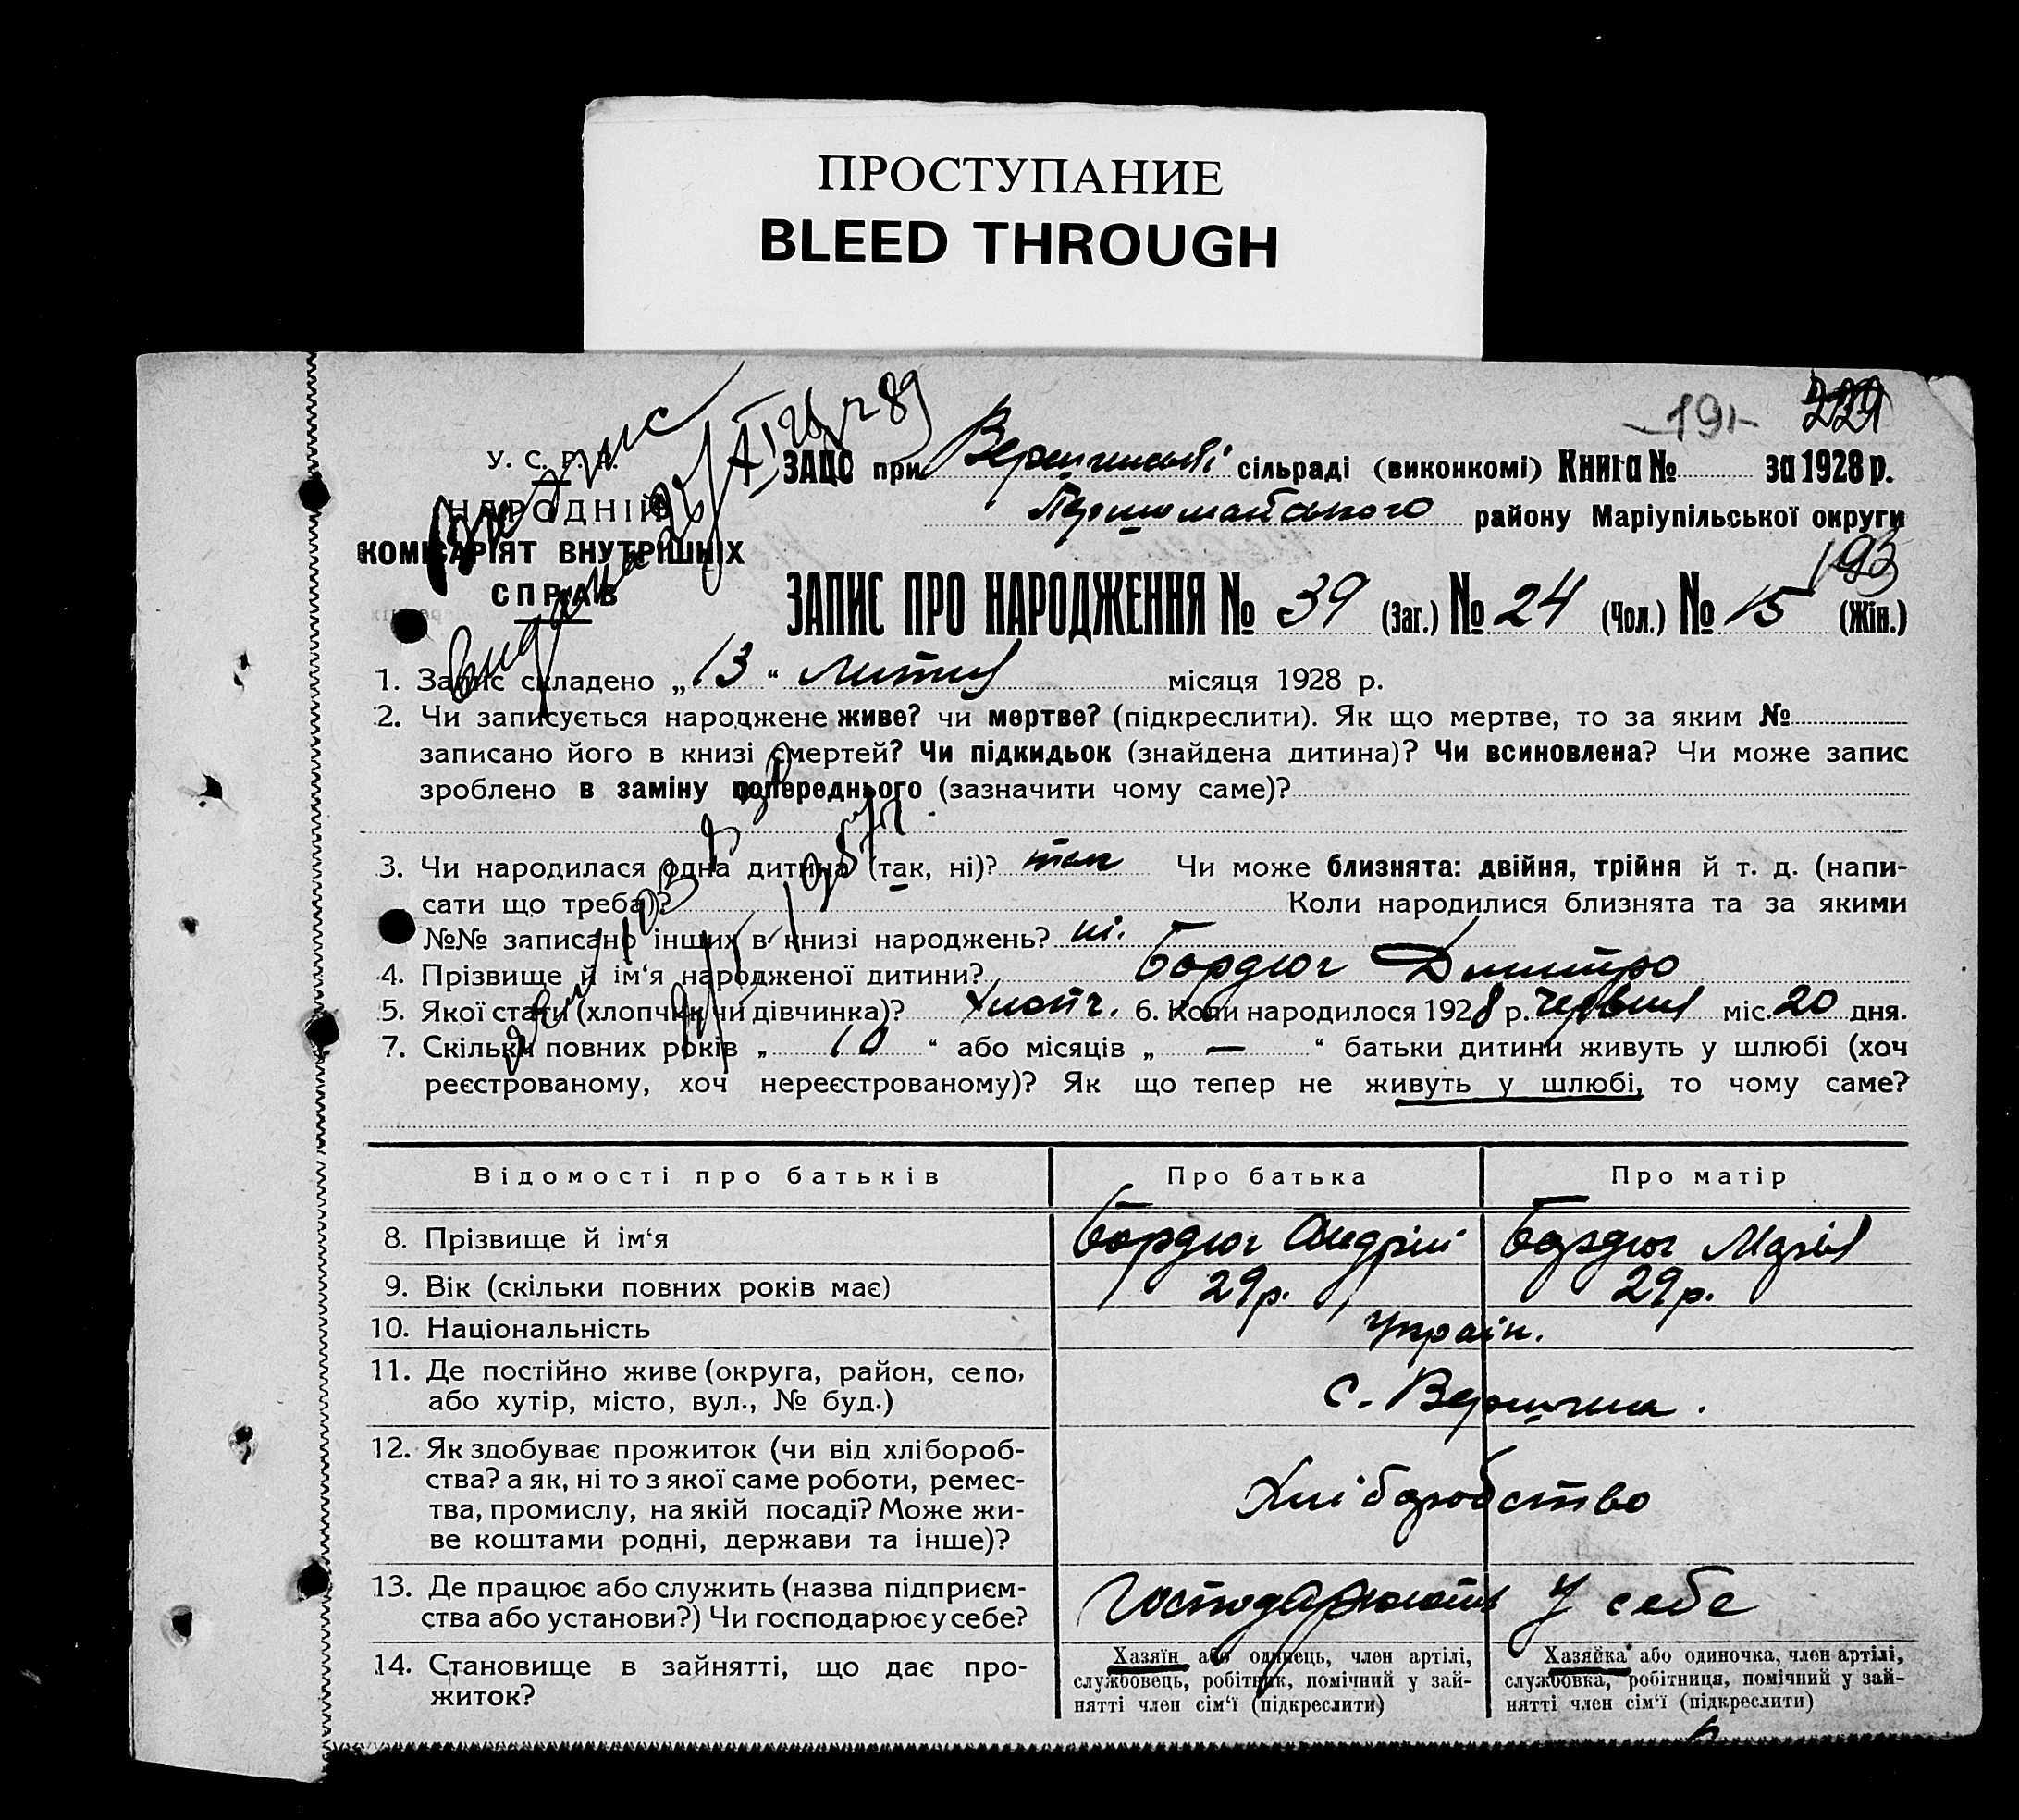 ПРОСТУПАНИЕ
BLEED THROUGH
-191-
У. С. Р. Р.
НАРОДНІЙ
КОМІСАРІЯТ ВНУТРІШНІХ
СПРАВ
ЗАЦС при сільраді (виконкомі) Книга № за 1928 р.
Першотравенського району Маріупільської округи
193
ЗАПИС ПРО НАРОДЖЕННЯ № 39 (Заг.) № 24 (Чол.) № 15 (Жін.)
1. Запис складено „13“ місяця 1928 р.
2. Чи записується народжене живе? чи мертве? (підкреслити). Як що мертве, то за яким №
записано його в книзі смертей? Чи підкидьок (знайдена дитина)? Чи всиновлена? Чи може запис
зроблено в заміну попереднього (зазначити чому саме)?
3. Чи народилася одна дитина (так, ні)? так Чи може близнята: двійня, трійня й т. д. (напи-
сати що треба)? Коли народилися близнята та за якими
№№ записано інших в книзі народжень? ні.
4. Прізвище й ім‘я народженої дитини? Бордюг Дмитро
5. Якої стати (хлопчик чи дівчинка)? Хлопч. 6. Коли народилося 1928 р. червня міс. 20 дня.
7. Скільки повних років „10“ або місяців „—“ батьки дитини живуть у шлюбі (хоч
реєстрованому, хоч нереєстрованому)? Як що тепер не живуть у шлюбі, то чому саме?
Відомості про батьків Про батька Про матір
8. Прізвище й ім‘я Бордюг Андрій Бордюг Марія
9. Вік (скільки повних років має) 29 р. 29 р.
10. Національність Україн.
11. Де постійно живе (округа, район, село,
або хутір, місто, вул., № буд.) с.
12. Як здобуває прожиток (чи від хлібороб-
ства? а як, ні то з якої саме роботи, ремес-
тва, промислу, на якій посаді? Може жи-
ве коштами родні, держави та інше)? Хліборобство
13. Де працює або служить (назва підприєм-
ства або установи?) Чи господарює у себе? Господарюють у себе
14. Становище в зайнятті, що дає про-
житок?
Хазяїн або одинець, член артілі,
службовець, робітник, помічний у зай-
нятті член сім‘ї (підкреслити)
Хазяйка або одиночка, член артілі,
службовка, робітниця, помічний у зай-
нятті член сім‘ї (підкреслити)